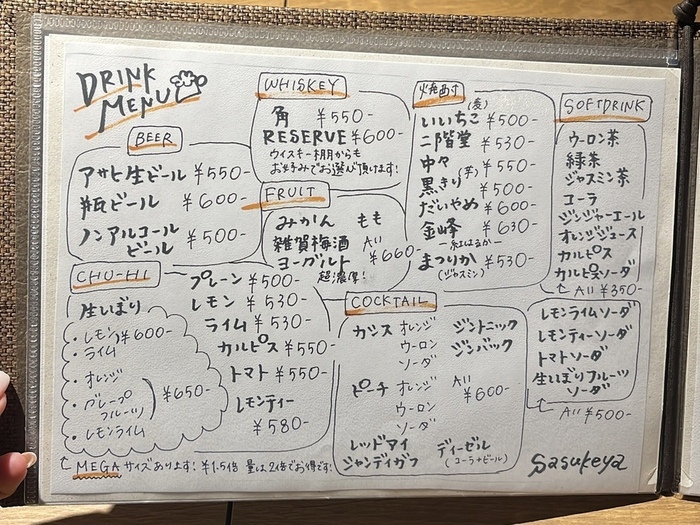 DRINK
MENU
BEER
アサヒ生ビール ¥550-
瓶ビール ¥600-
ノンアルコール
ビール ¥500-
WHISKEY
角 ¥550-
RESERVE ¥600-
ウイスキー棚からも
お好みでお選び頂けます!
FRUIT
みかん もも
雑賀梅酒 All
ヨーグルト ¥660-
超濃厚!
焼酎
(麦)
いいちこ ¥500-
二階堂 ¥530-
中々 ¥550-
(芋)
黒きり ¥500-
だいやめ ¥600-
金峰 ¥630-
-紅はるか-
まつりか ¥530-
(ジャスミン)
SOFTDRINK
ウーロン茶
緑茶
ジャスミン茶
コーラ
ジンジャーエール
オレンジジュース
カルピス
カルピスソーダ
All ¥350-
レモンライムソーダ
レモンティーソーダ
トマトソーダ
生しぼりフルーツ
ソーダ
All ¥500-
CHU-HI
生しぼり
・レモン ¥600-
・ライム
・オレンジ
・グレープ
フルーツ ¥650-
・レモンライム
プレーン ¥500-
レモン ¥530-
ライム ¥530-
カルピス ¥550-
トマト ¥550-
レモンティー
¥580-
MEGAサイズあります! ¥1.5倍 量は2倍でお得です!
COCKTAIL
カシス オレンジ
ウーロン
ソーダ
ピーチ オレンジ
ウーロン
ソーダ
レッドアイ
シャンディガフ
ジントニック
ジンバック
All
¥600-
ディーゼル
(コーラ+ビール)
Sasukeya